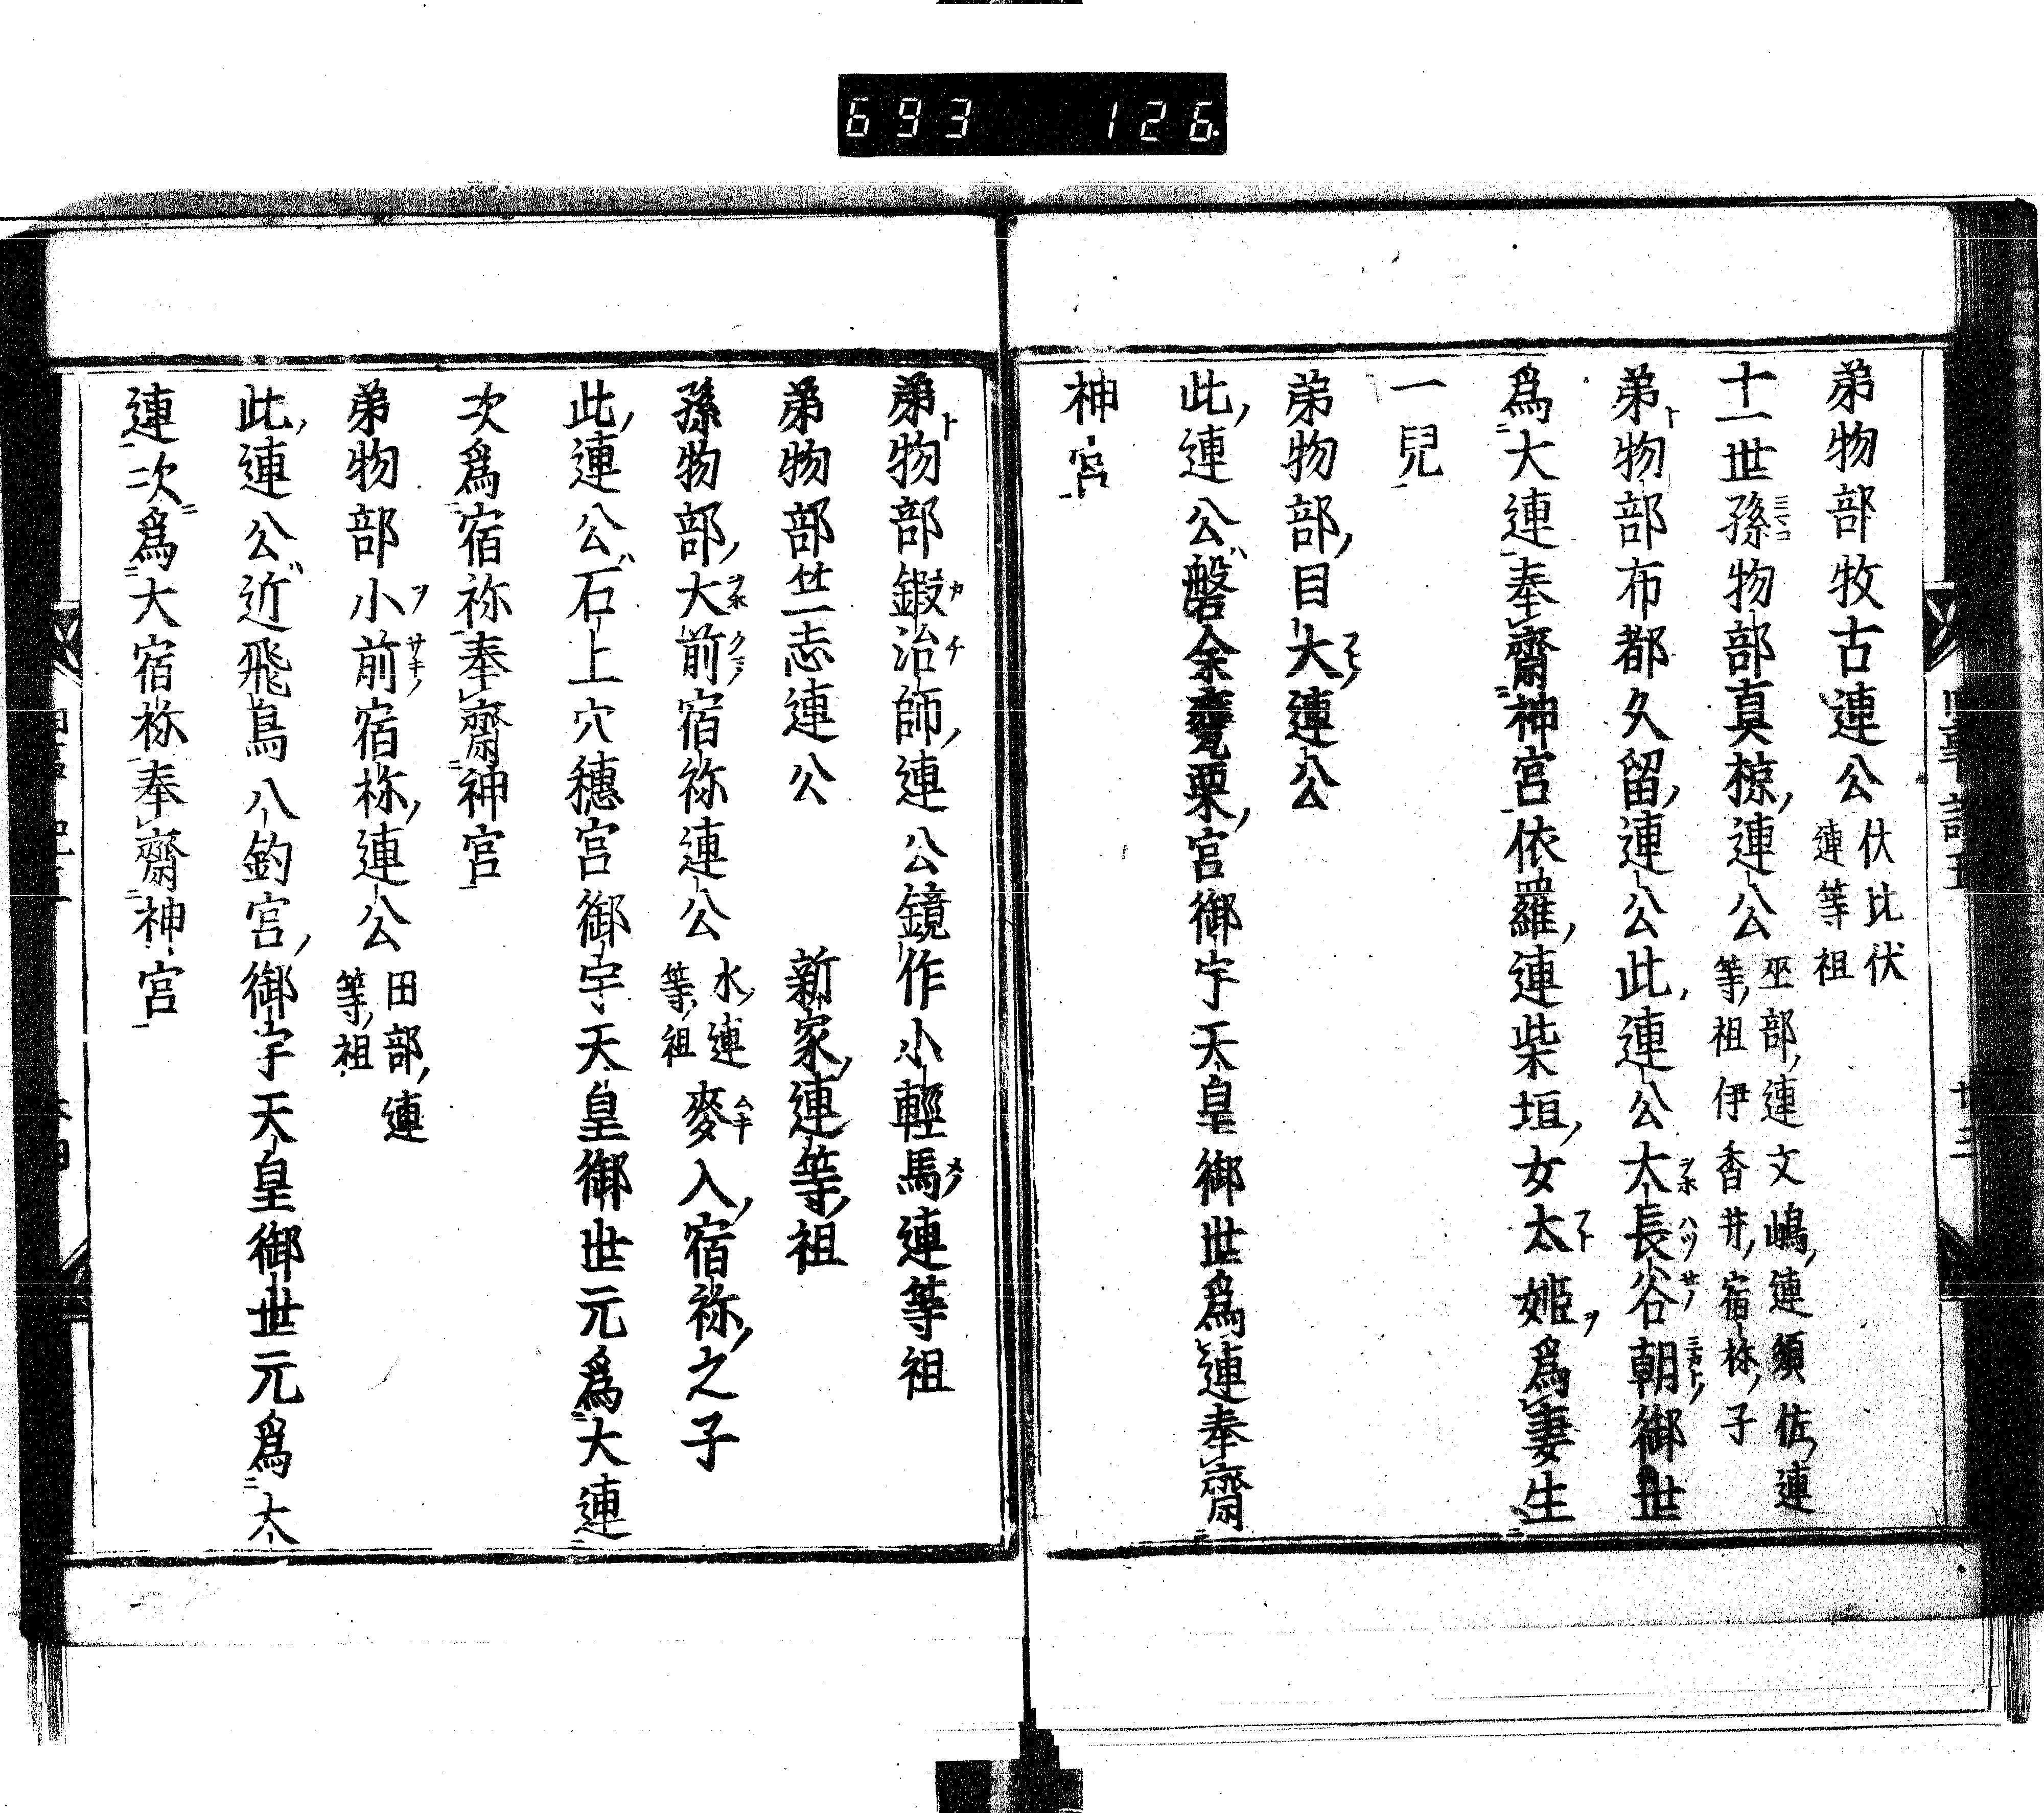 693 126
弟物部牧古連公 伏比伏連等祖
十一世孫物部真椋連公 巫部連文嶋連須佐連等祖伊香井宿祢子
弟物部布都久留連公此連公太長谷朝御世
爲大連奉齋神宮依羅連柴垣女太姫爲妻生
一兒
弟物部目大連公
此連公磐余甕栗宮御宇天皇御世爲連奉齋
神宮
弟物部鍛治師連公鏡作小輕馬連等祖
弟物部竺志連公 新家連等祖
孫物部大前宿祢連公 水連等祖 麥入宿祢之子
此連公石上穴穗宮御宇天皇御世元爲大連
次爲宿祢奉齋神宮
弟物部小前宿祢連公 田部連等祖
此連公近飛鳥八釣宮御宇天皇御世元爲大
連次爲大宿祢奉齋神宮